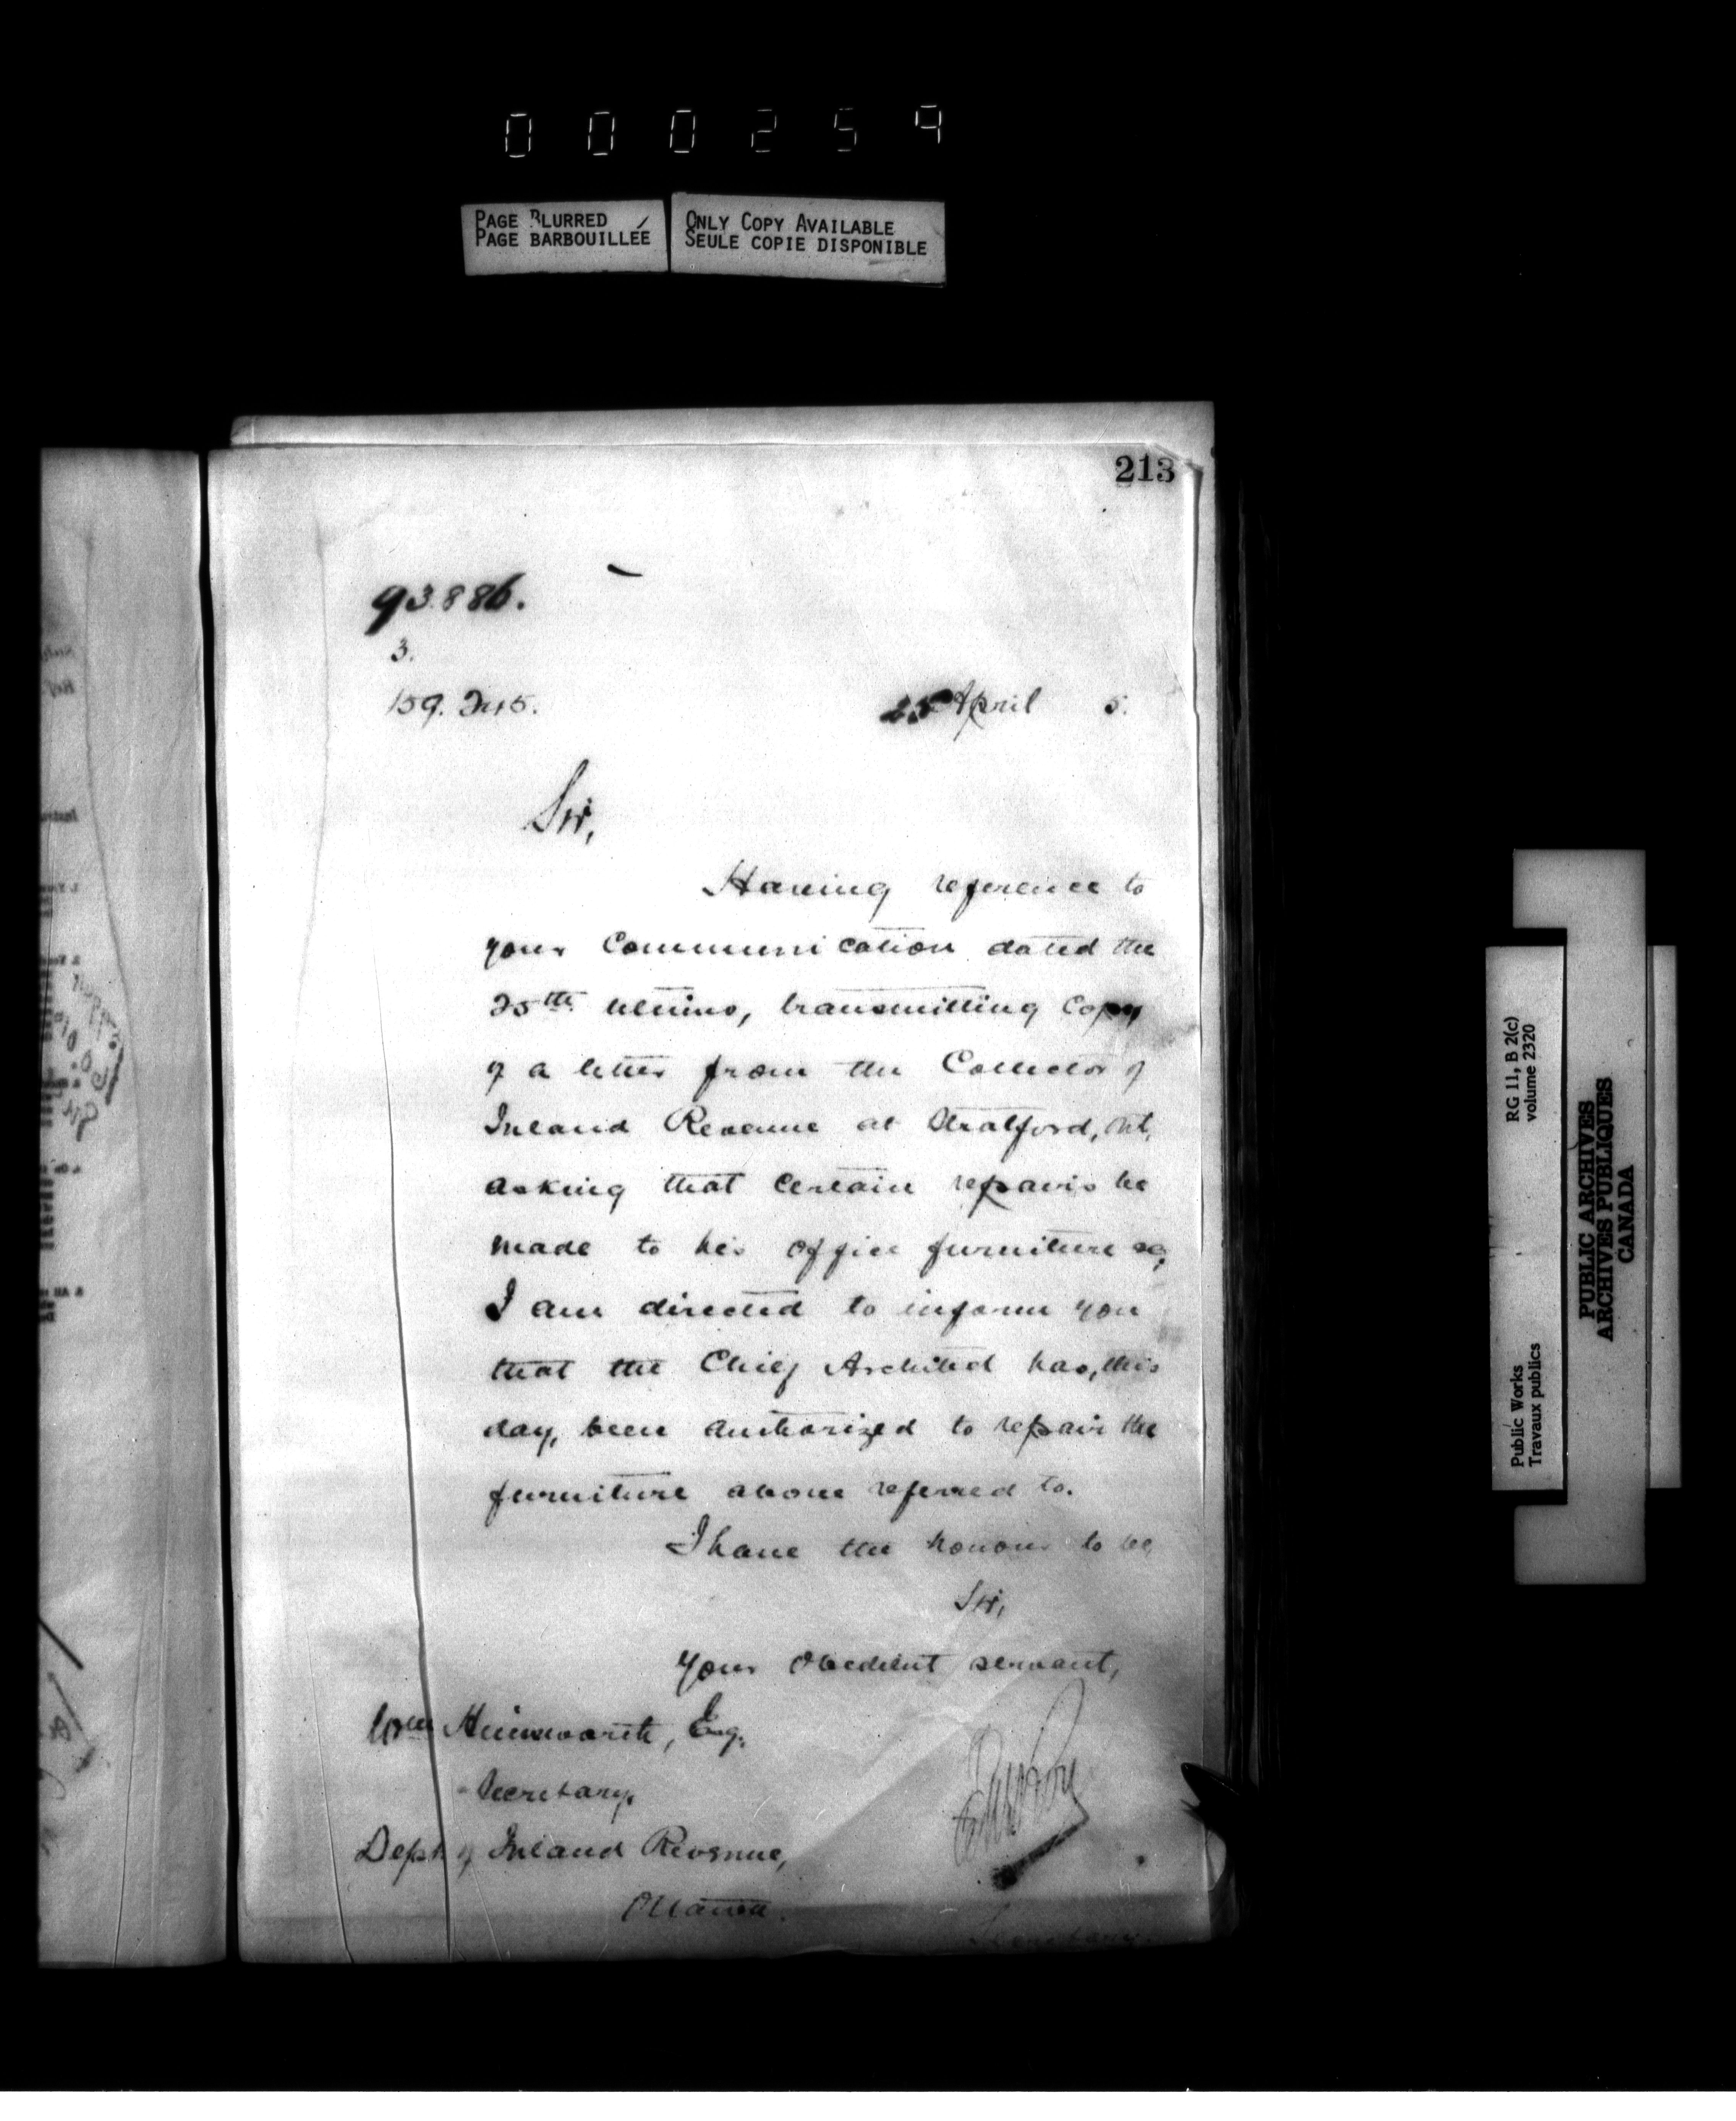 000259
PAGE BLURRED
PAGE BARBOUILLÉE
ONLY COPY AVAILABLE
SEULE COPIE DISPONIBLE
213
93886.
3.
159.245.
25 April 5.
Sir,
Having reference to
your Communication dated the
25th ultimo, transmitting Copy
of a letter from the Collector of
Inland Revenue at Stratford, Ont,
asking that certain repairs be
made to his office furniture &c,
I am directed to inform you
that the Chief Architect has, this
day, been authorized to repair the
furniture above referred to.
I have the honour to be
Sir,
Your obedient servant,
Wm Himsworth, Esq.
Secretary,
Dept of Inland Revenue,
Ottawa.
Secretary.
RG 11, B 2(c)
volume 2320
Public Works
Travaux publics
PUBLIC ARCHIVES
ARCHIVES PUBLIQUES
CANADA